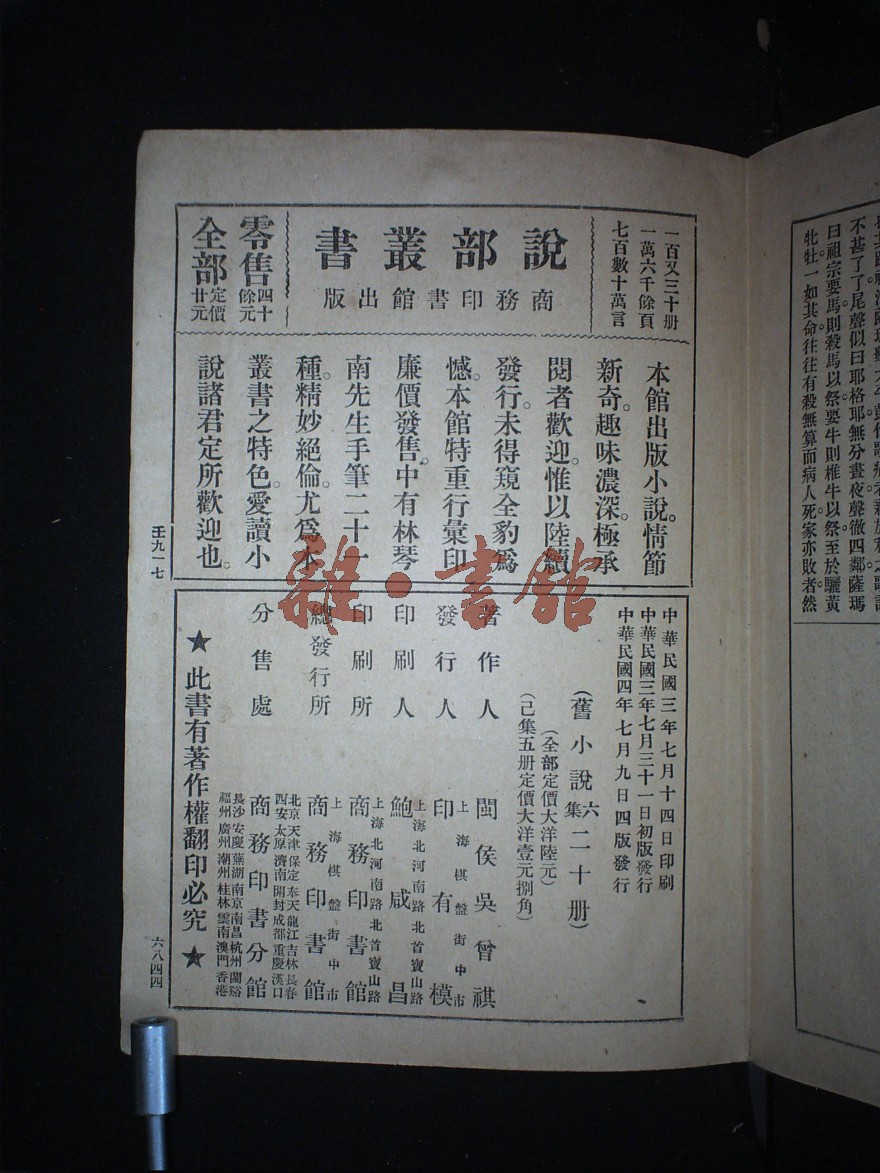 不甚了了尾聲似曰耶格耶無分晝夜聲徹四鄰薩瑪
曰祖宗要馬則殺馬以祭要牛則椎牛以祭至於驪黃
牝牡一如其命往往有殺無算而病人死家亦敗者然
一百又三十册
一萬六千餘頁
七百數十萬言
說部叢書
商務印書館出版
零售四十餘元
全部定價廿元
本館出版小說。情節
新奇。趣味濃深。極承
閱者歡迎。惟以陸續
發行。未得窺全豹爲
憾。本館特重行彙印
廉價發售。中有林琴
南先生手筆二十一
種。精妙絕倫。尤爲本
叢書之特色。愛讀小
說諸君定所歡迎也。
壬九一七
中華民國三年七月十四日印刷
中華民國三年七月三十一日初版發行
中華民國四年七月九日四版發行
(舊小說六集二十册)
(全部定價大洋陸元)
(己集五册定價大洋壹元捌角)
著作人 閩侯吳曾祺
發行人 上海棋盤街中市 印有模
印刷人 上海北河南路北首寶山路 鮑咸昌
印刷所 上海北河南路北首寶山路 商務印書館
總發行所 上海棋盤街中市 商務印書館
分售處 北京天津保定奉天龍江吉林長春
西安太原濟南開封成都重慶漢口
商務印書分館
長沙安慶蕪湖南京南昌杭州蘭谿
福州廣州潮州桂林雲南澳門香港
★此書有著作權翻印必究★
六八四四
雜·書館